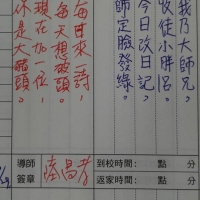 我乃大師兄。
吸徒小胖呂。
今日改日記，
師定臉發綠。
每日來一詩，
每天想破頭。
現在加一位，
你是大豬頭。
導師
簽章
到校時間： 點 分
返家時間： 點 分